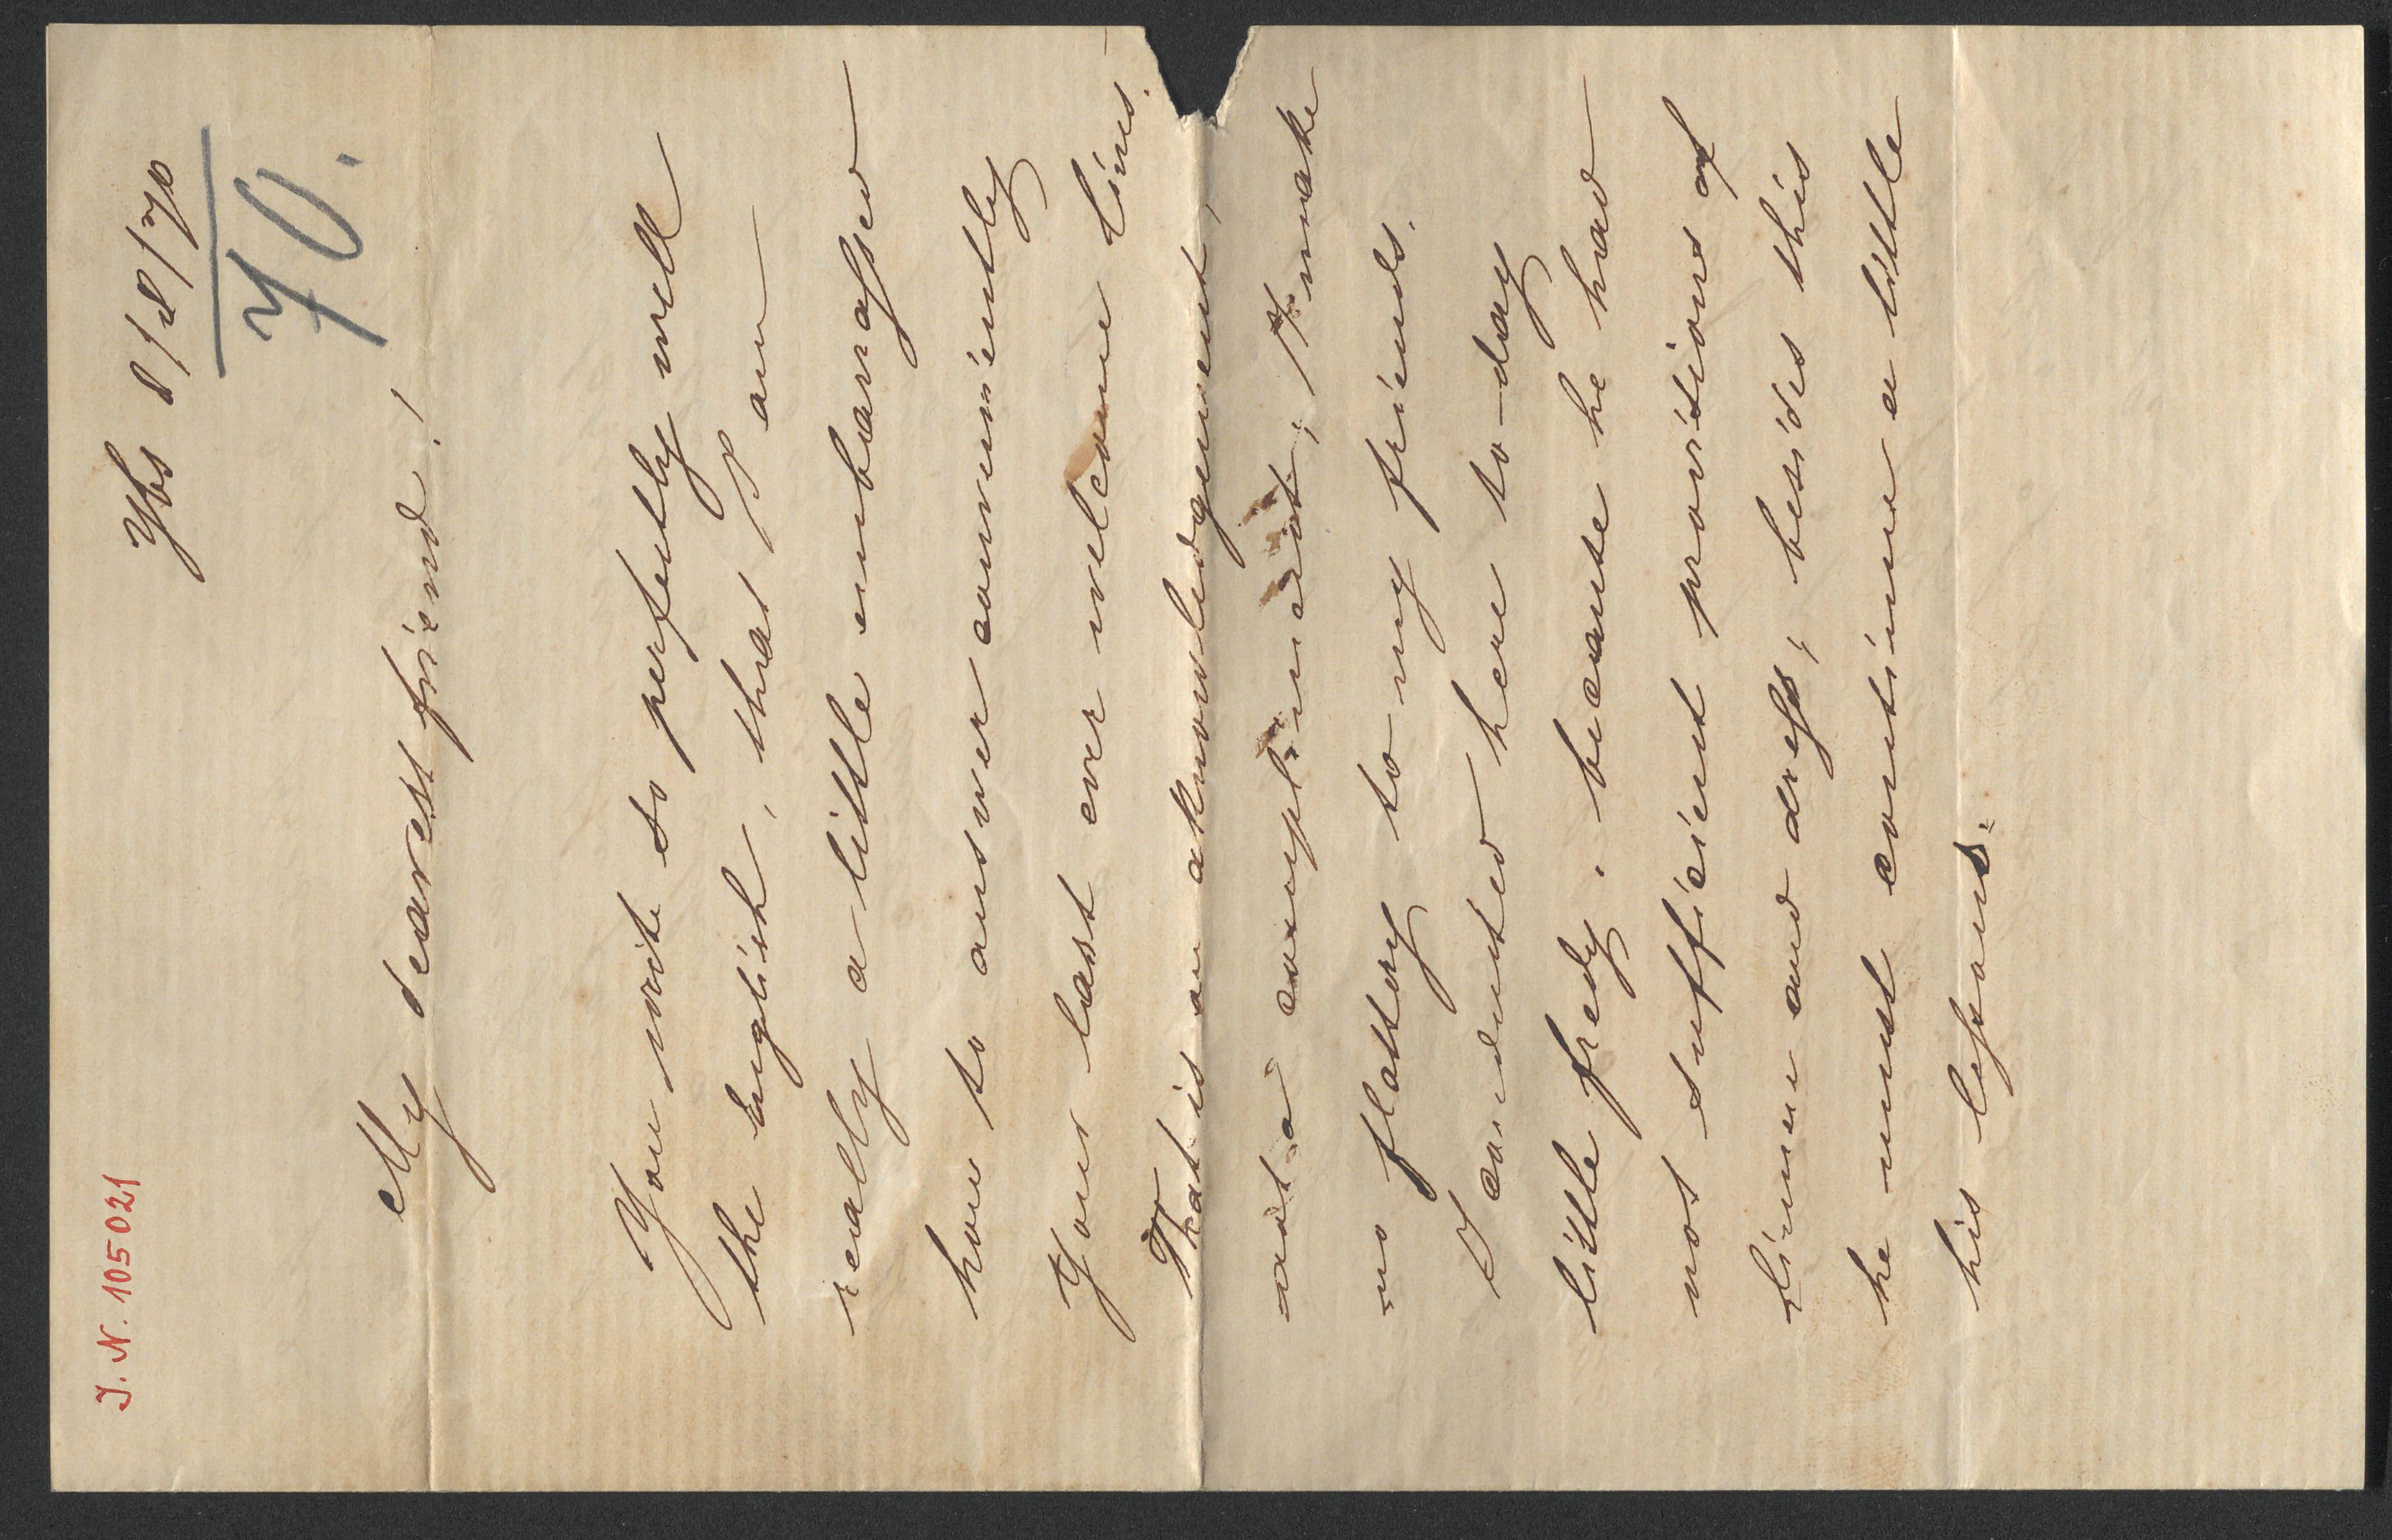 J. N. 105021
Ybs 8/8/70
70.
My dearest friend!
You write so perfectly well
the english, that I am
really a little embarassed
how to answer conveniently
Your last ever welcome lines.
That is an aknowledgement,
not a compliment, I make
no flattery to my friends.
I conducted here to-day
little fredy, because he had
not sufficient provisions of
linnen and dress, besides this
he must continue a little
his lessons.